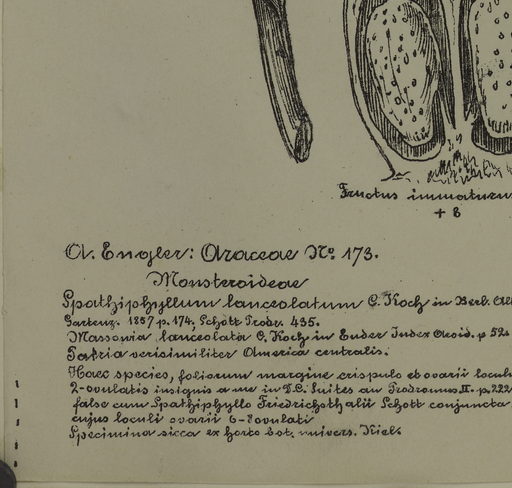 Fructus immaturus
+ 8
A. Engler: Araceae No. 173.
Monsteroideae
Spathiphyllum lanceolatum C. Koch in Berl. All
Gartenz. 1857 p. 174, Schott Prodr. 435.
Massowia lanceolata C. Koch in Ender Index Aroid. p 52
Patria verisimiliter America centralis.
Haec species, foliorum margine crispulo et ovarii loculi
2-ovulatis insignis a me in D.C. Suites au Prodromus II. p. 222
false cum Spathiphyllo Friedrichsthalii Schott conjuncta
cujus loculi ovarii 6-8 ovulati
Specimina sicca ex horto bot. univers. Kiel.